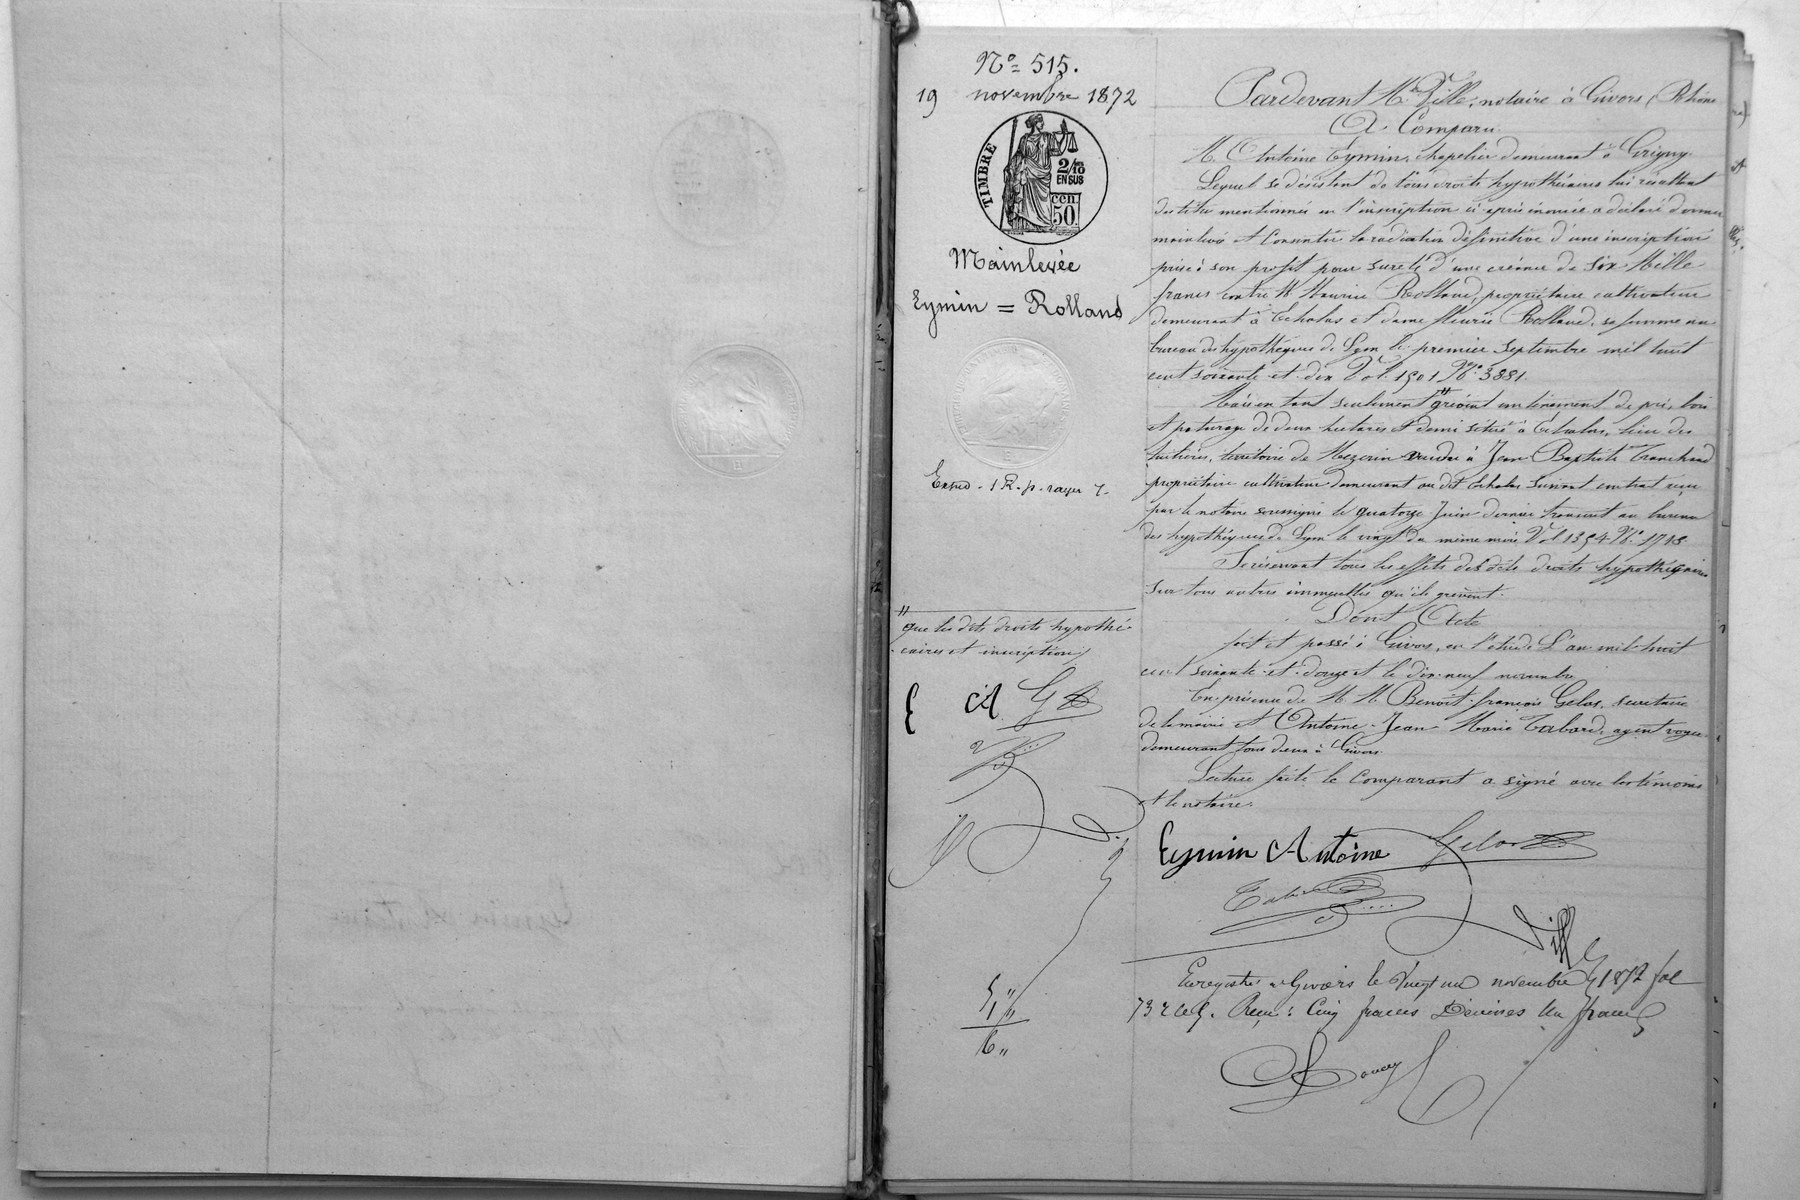 N° 515.
19 novembre 1872
TIMBRE
2/10
EN SUS
CEN.
50
Mainlevée
Eymin = Rolland
Exped. 1 R. p. rayer 7.
que les dits droits hypothé-
caires et inscription
Pardevant Me Ville, notaire à Givors (Rhône
A Comparu
M. Antoine Eymin, chapelier demeurant à Grigny.
Lequel se désistant de tous droits hypothécaires lui résultant
des titres mentionnés en l'inscription ci-après énoncée a déclaré donner
mainlevée et consentir la radiation définitive d'une inscription
prise à son profit pour sureté d'une créance de six Mille
francs contre M. Maurice Rolland, propriétaire cultivateur
demeurant à Echalas et dame fleurie Rolland, sa femme au
bureau des hypothèques de Lyon le premier septembre mil huit
cent soixante-et-dix Vol. 1501 N° 3881.
Mais en tant seulement grèvent un tènement de pré, bois
et paturage de deux hectares et demi situé à Echalas, lieu des
territoire de Mezerin vendu à Jean-Baptiste Tranchand
propriétaire cultivateur demeurant au dit Echalas suivant contrat reçu
par le notaire soussigné le quatorze Juin dernier transcrit au bureau
des hypothèques de Lyon le vingt du même mois Vol 1354 N° 1745.
Se réservant tous les effets des dits droits hypothécaires
sur tous autres immeubles qu'ils grèvent.
Dont Acte
fait et passé à Givors, en l'étude L'an mil-huit
cent soixante-et-douze et le dix-neuf novembre
En présence de M M. Benoit-françois Gelas, secrétaire
de la mairie et Antoine-Jean-Marie Tabard, agent voyer
demeurant tous deux à Givors.
Lecture faite le Comparant a signé avec les témoins
et le notaire.
Eymin Antoine Gelas
Tabard
Ville
Enregistré à Givors le Vingt un novembre 1872 fol
73 Reçu: Cinq francs Décimes Un franc
5 "
1 "
6 "